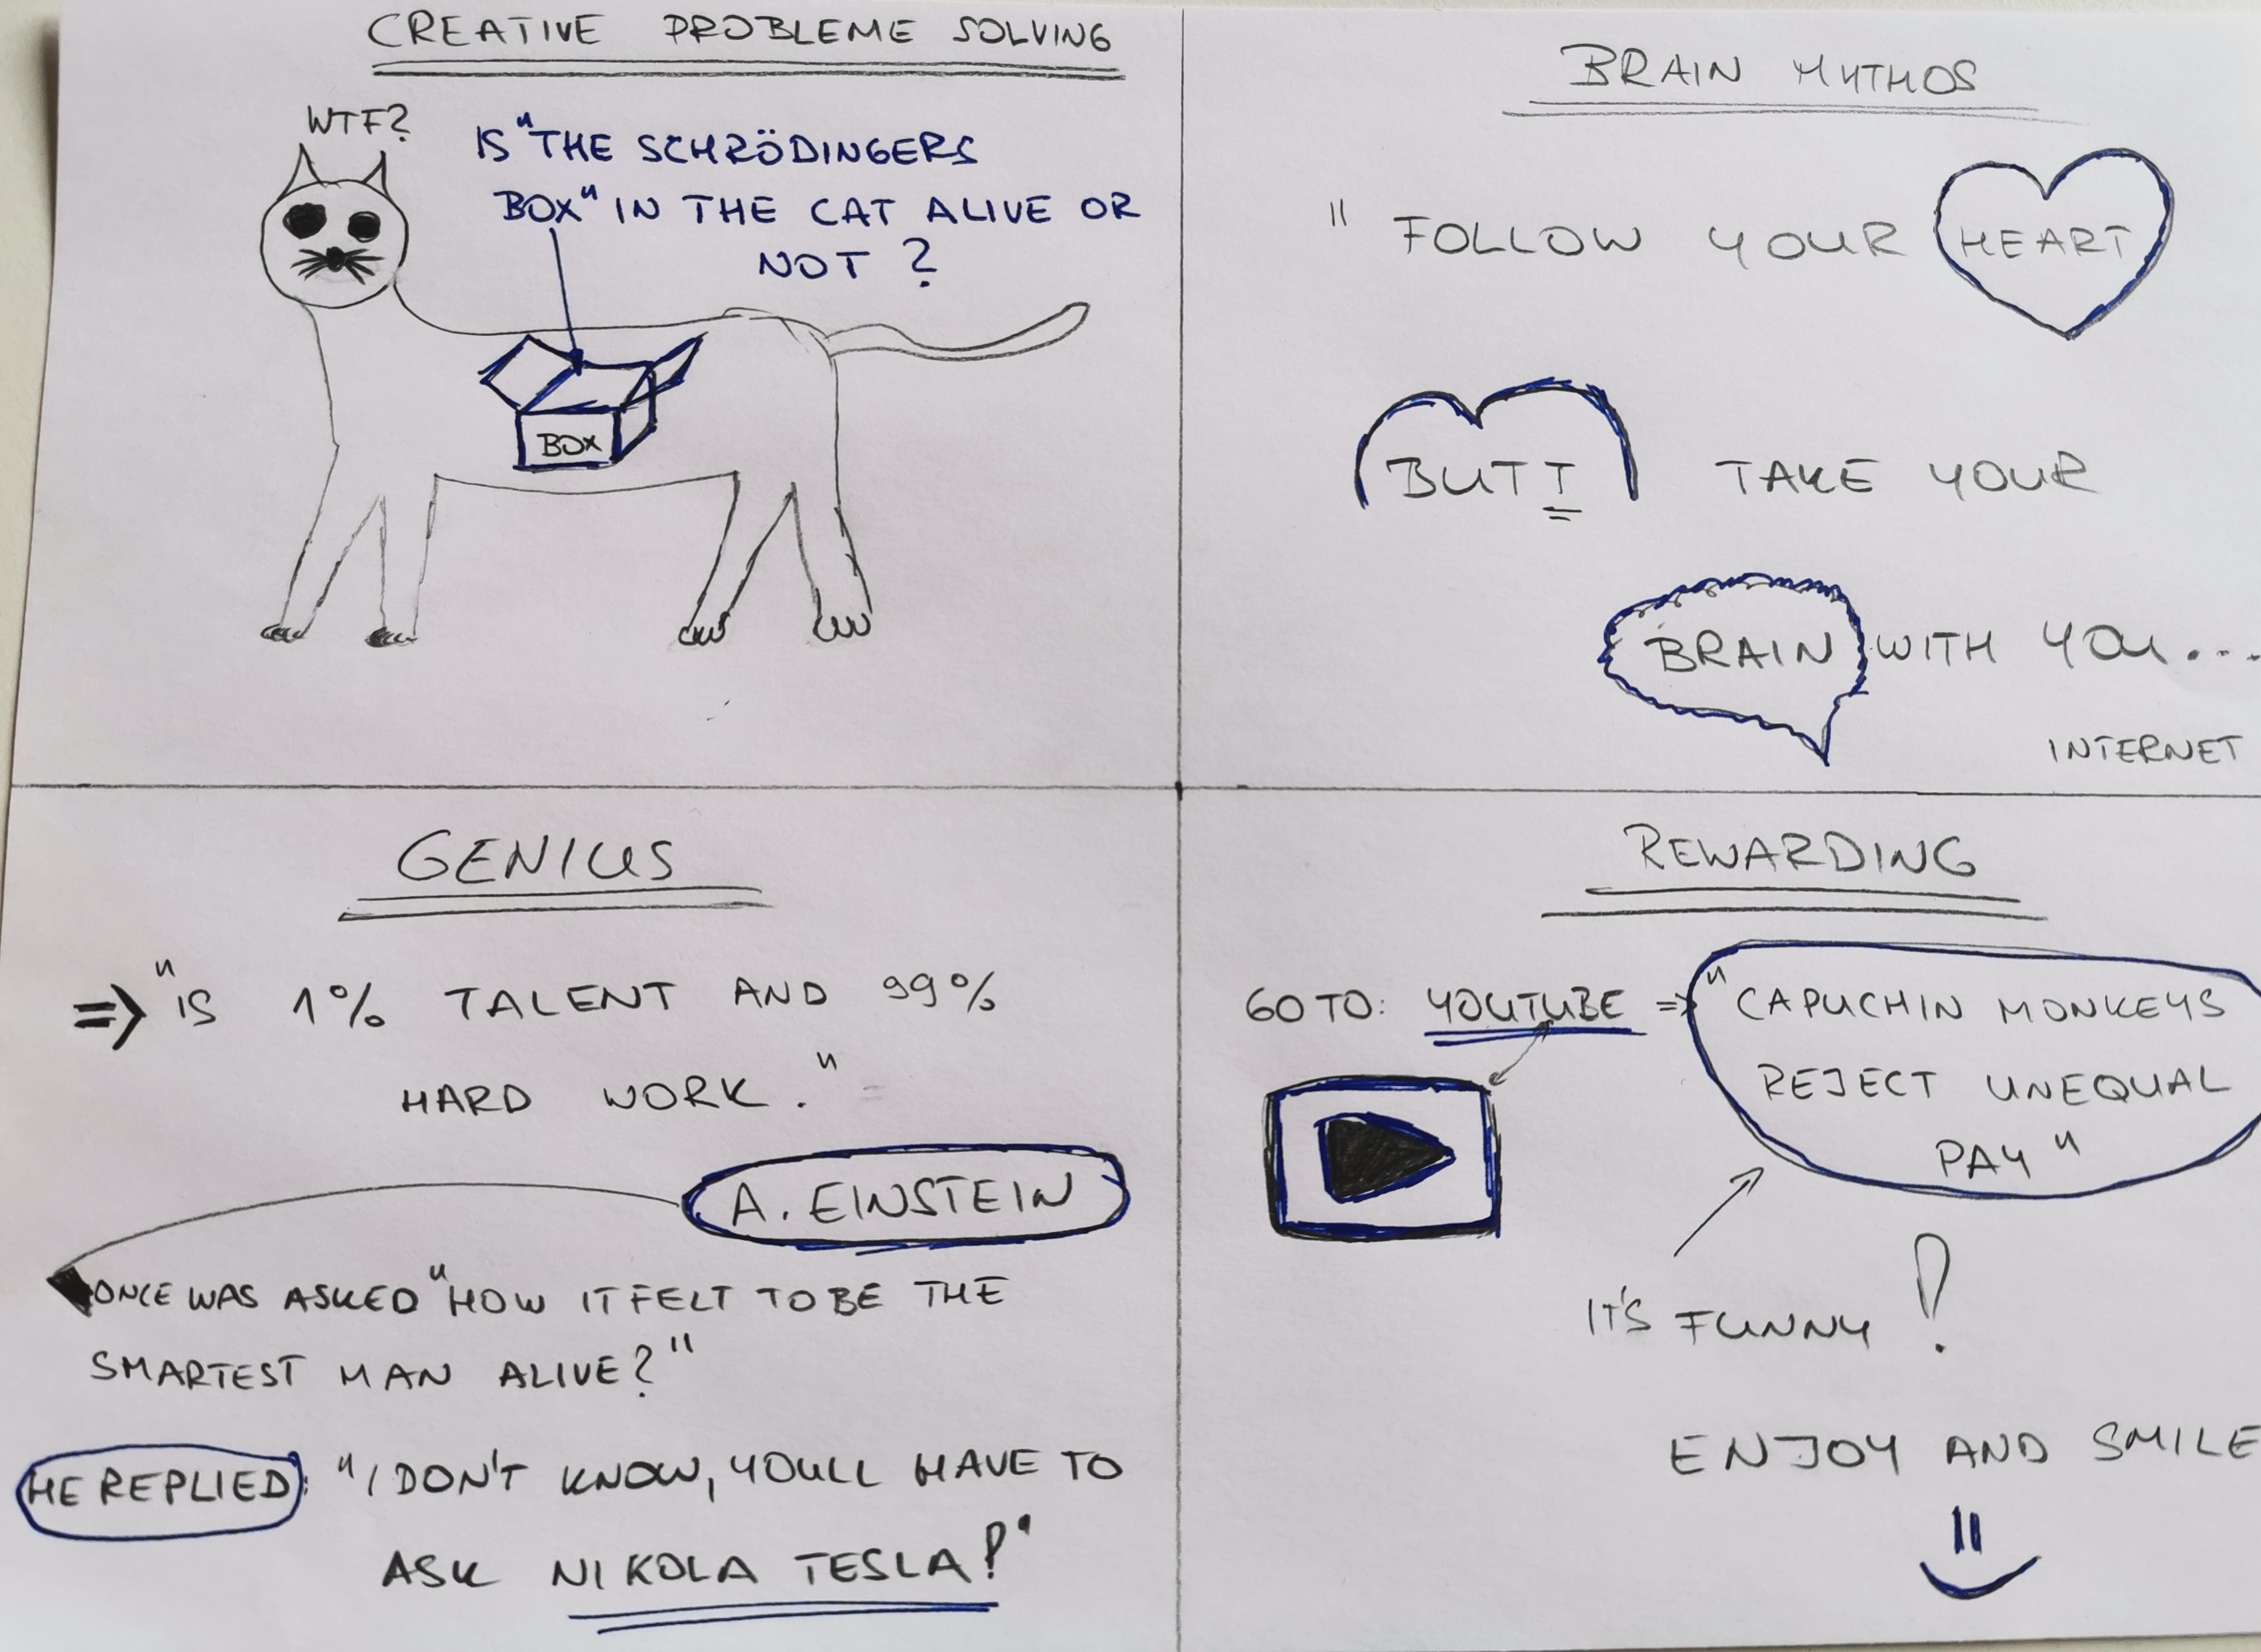 CREATIVE PROBLEME SOLVING
WTF?
IS "THE SCHRÖDINGERS
BOX" IN THE CAT ALIVE OR
NOT ?
BOX
BRAIN MYTHOS
" FOLLOW YOUR HEART
BUTT TAKE YOUR
BRAIN WITH YOU...
INTERNET
GENIUS
=> "IS 1% TALENT AND 99%
HARD WORK."
A. EINSTEIN
ONCE WAS ASKED "HOW IT FELT TO BE THE
SMARTEST MAN ALIVE?"
HE REPLIED: "I DON'T KNOW, YOULL HAVE TO
ASK NIKOLA TESLA!"
REWARDING
GO TO: YOUTUBE => "CAPUCHIN MONKEYS
REJECT UNEQUAL
PAY"
IT'S FUNNY !
ENJOY AND SMILE